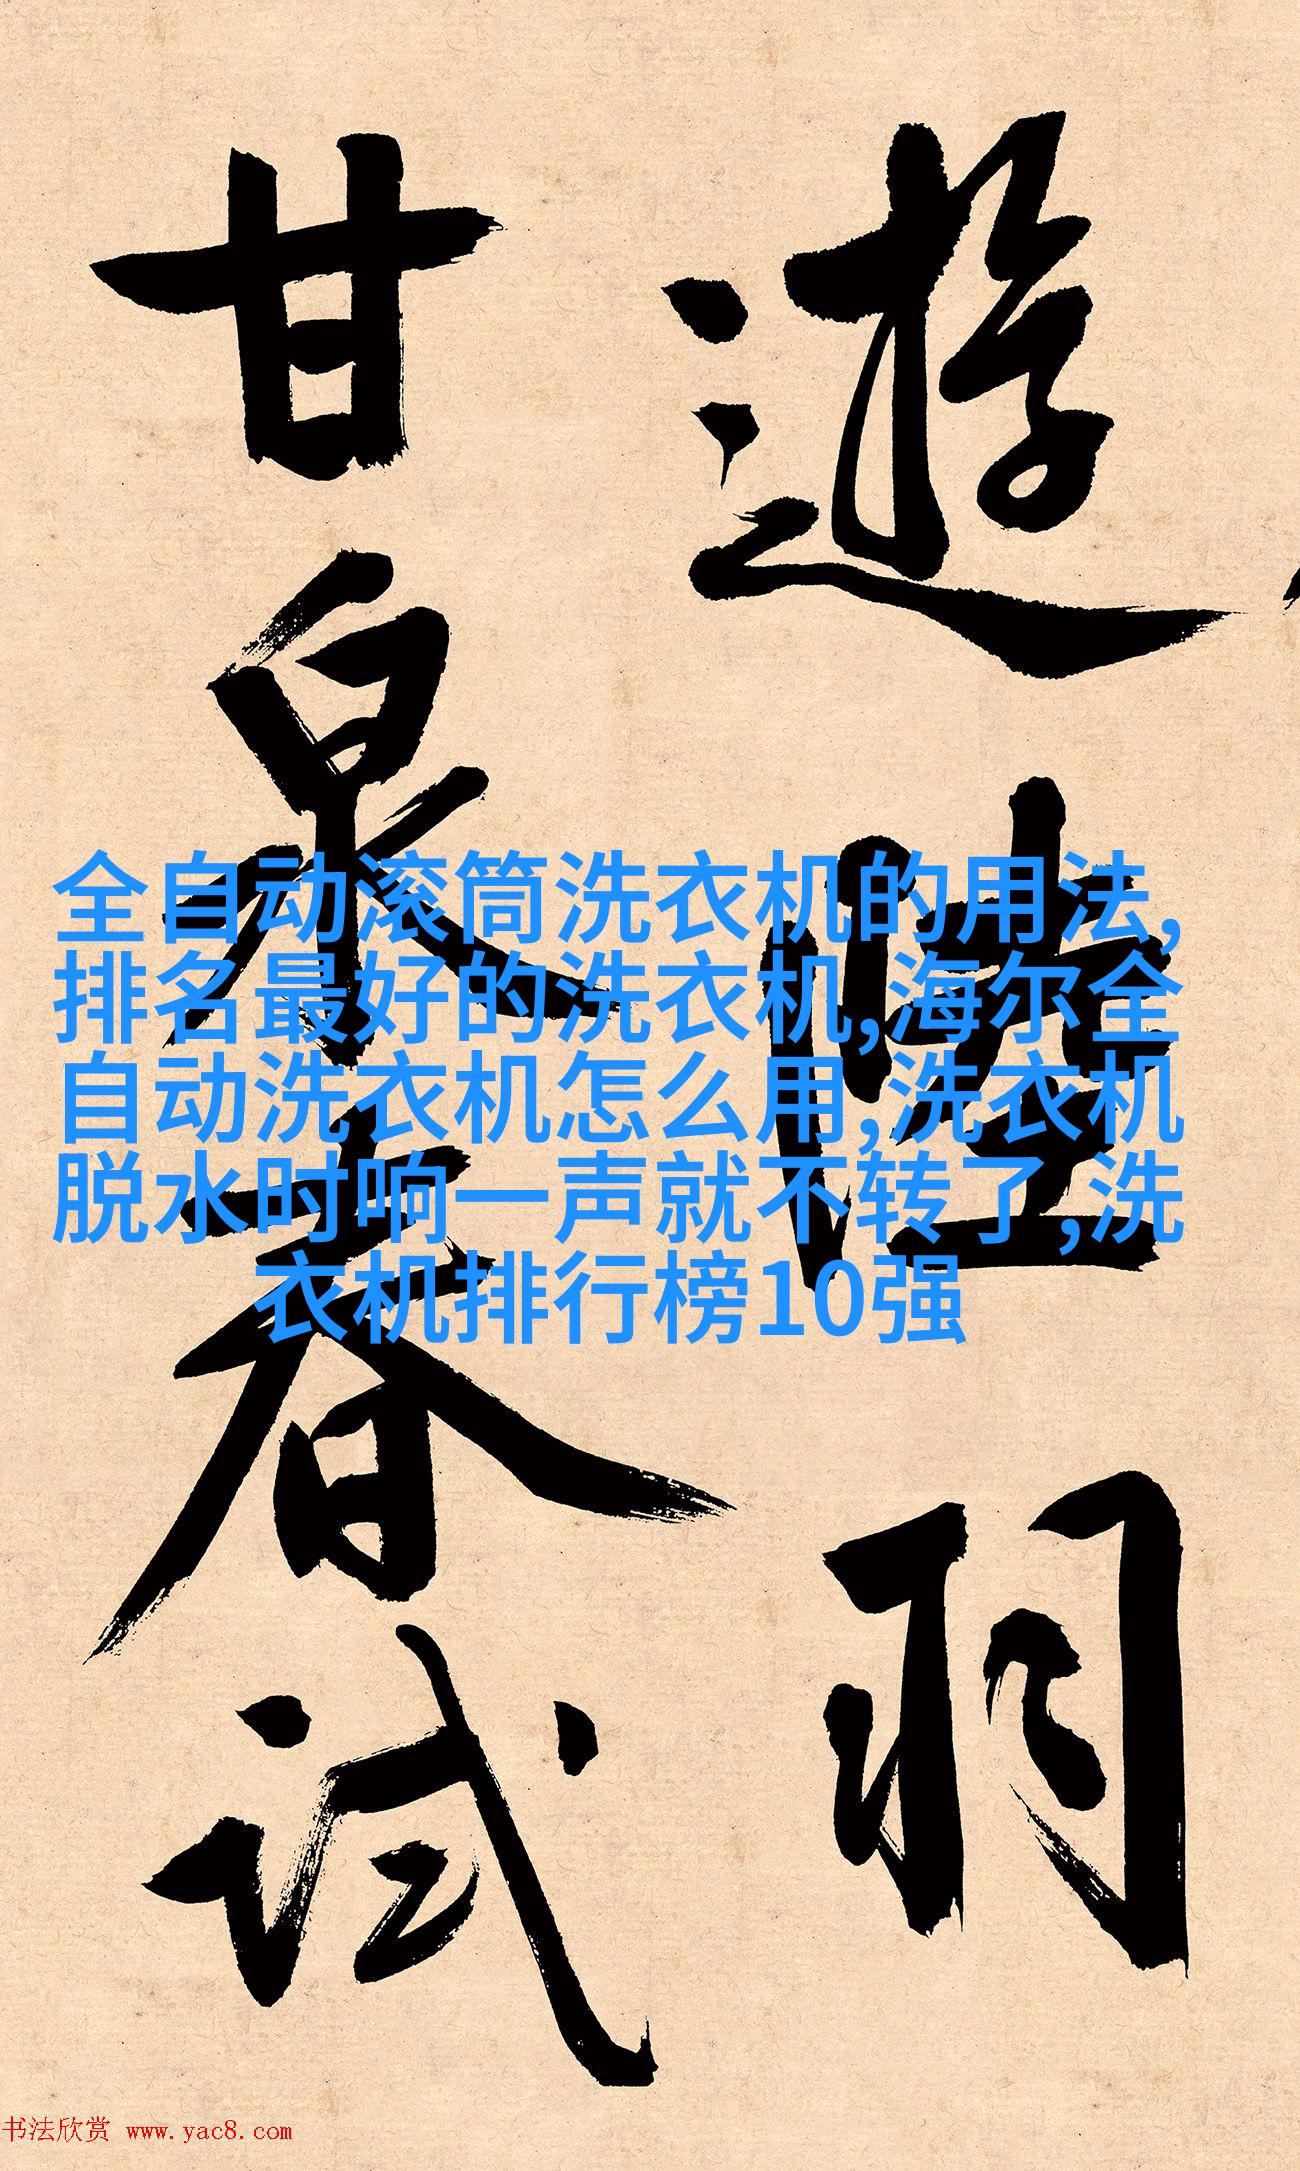 遊陸羽
甘泉春试
全自动滚筒洗衣机的用法,
排名最好的洗衣机,海尔全
自动洗衣机怎么用,洗衣机
脱水时响一声就不转了,洗
衣机排行榜10强
书法欣赏 www.yac8.com